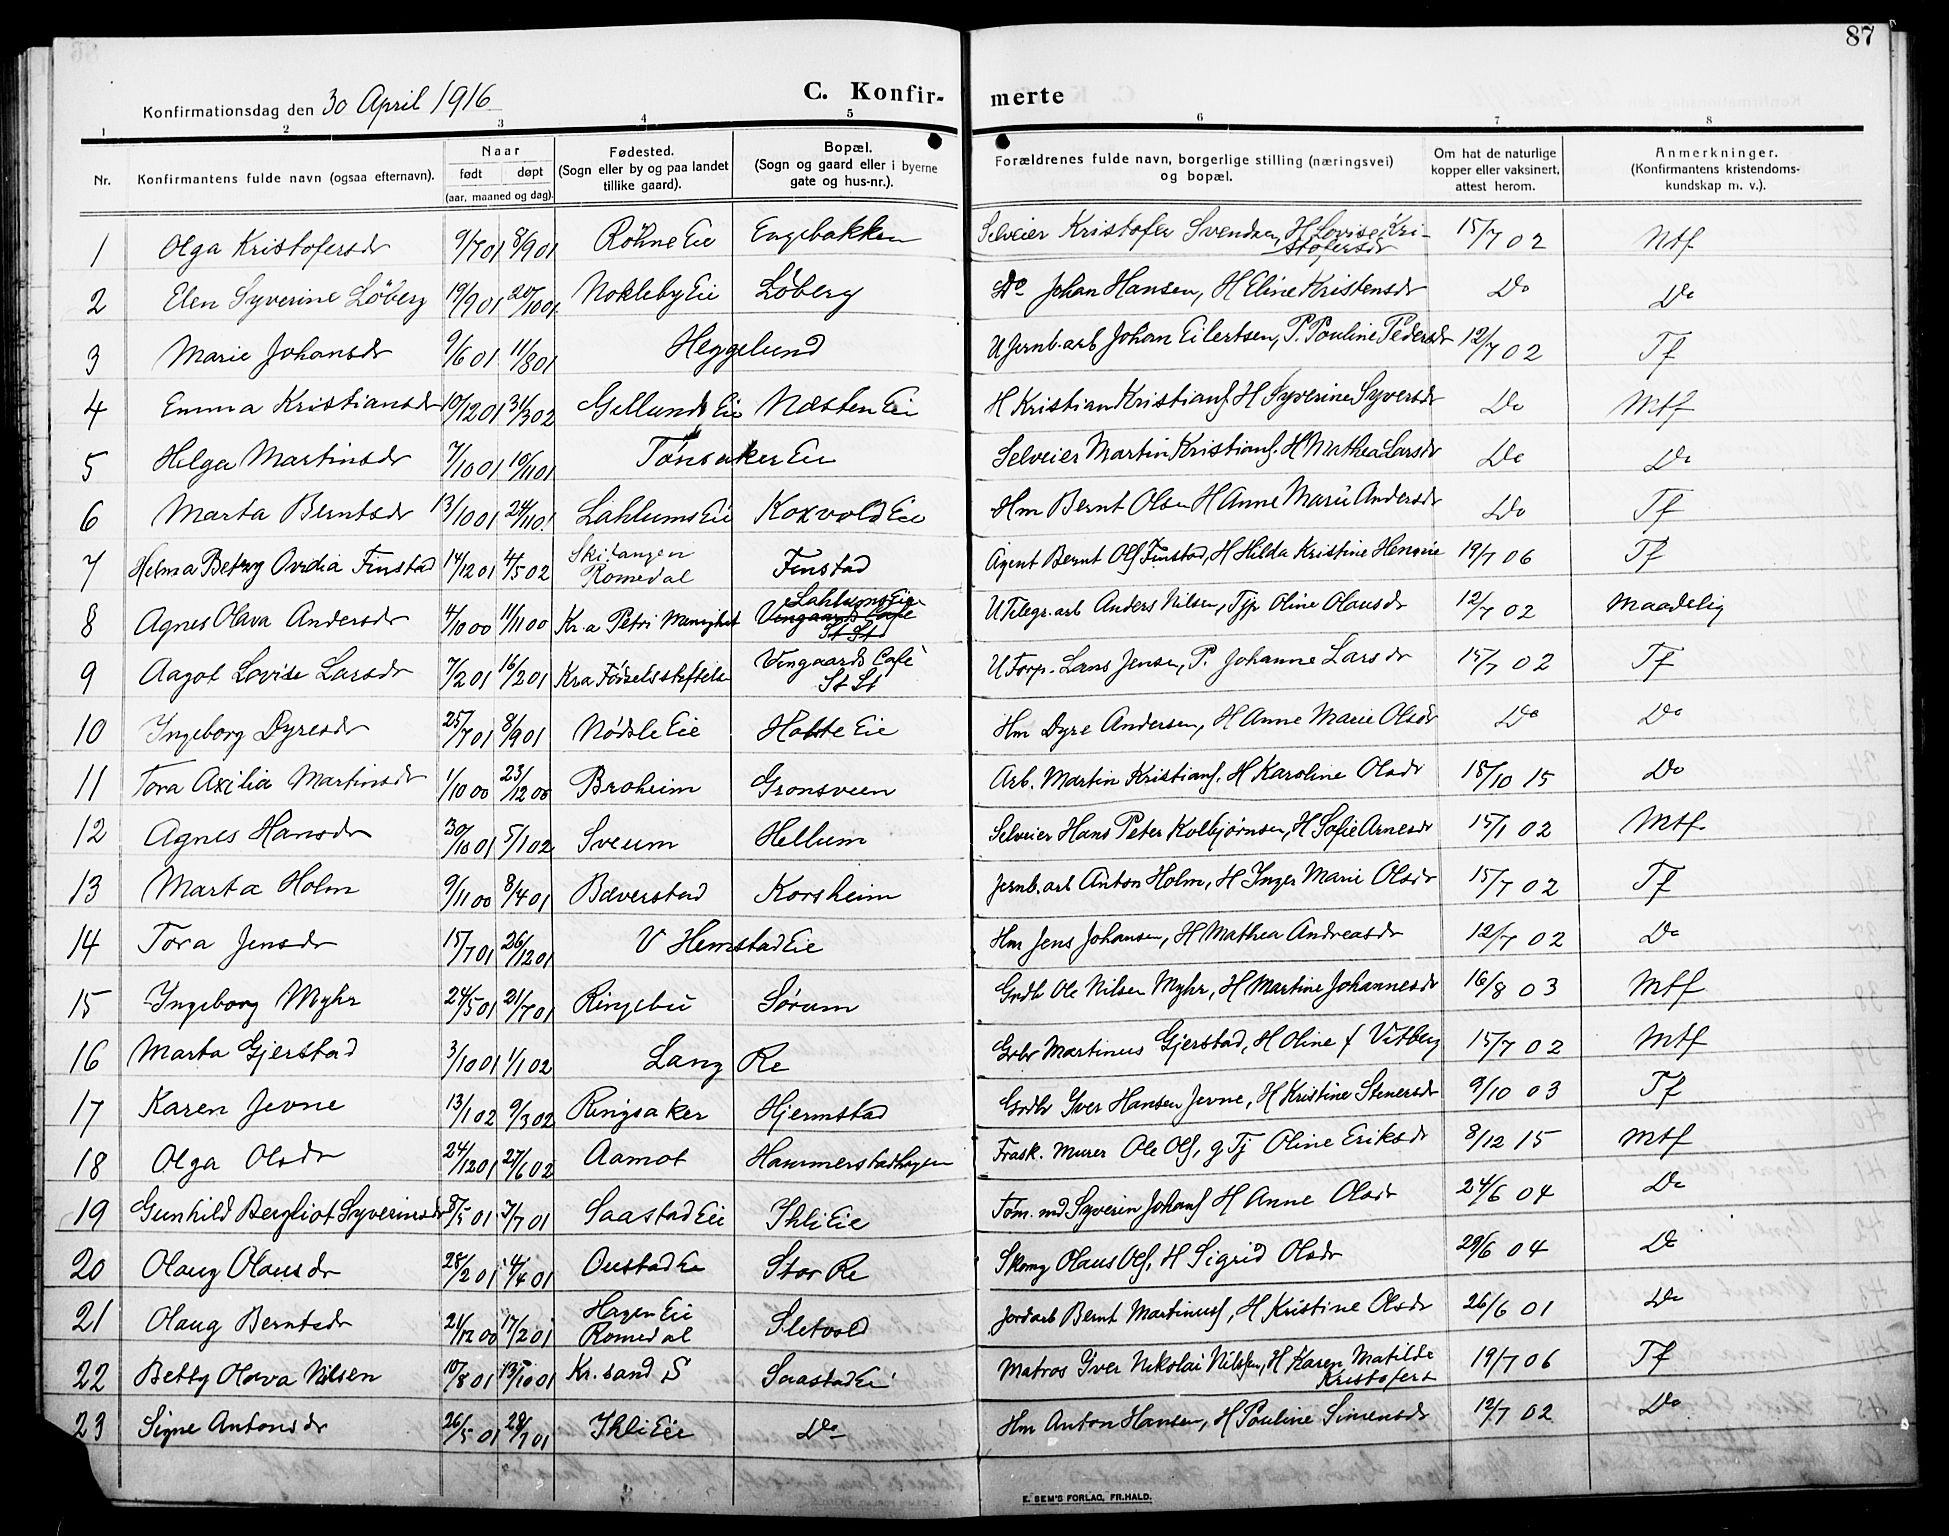 87
Konfirmationsdag den 30 April 1916
C. Konfir- merte
1 2 3 4 5 6 7 8
Nr. Konfirmantens fulde navn (ogsaa efternavn). Naar født døpt (aar, maaned og dag). Fødested. (Sogn eller by og paa landet tillike gaard). Bopæl. (Sogn og gaard eller i byerne gate og hus-nr.). Forældrenes fulde navn, borgerlige stilling (næringsvei) og bopæl. Om hat de naturlige kopper eller vaksinert, attest herom. Anmerkninger. (Konfirmantens kristendoms-kundskap m. v.).
1 Olga Kristofersdr 9/7 01 8/9 01 Røhne Eie Engebakken Selveier Kristofer Svendsen, H Lovise Kristofersdr 15/7 02 Mtf
2 Elen Syverine Löberg 19/9 01 20/10 01 Nokleby Eie Löberg Do Johan Hansen, H Eline Kristensdr Do Do
3 Marie Johansdr 9/6 01 11/8 01 Heggelund U Jernb.arb Johan Eilertsen, P. Pouline Pedersdr 12/7 02 Tf
4 Emma Kristiansdr 10/12 01 31/3 02 Gillunds Eie Næsten Eie H Kristian Kristians. H Syverine Syversdr Do Mtf
5 Helga Martinsdr 7/10 01 10/11 01 Tønsaker Eie Selveier Martin Kristians. H Mathea Larsdr Do Do
6 Marta Berntsdr 13/10 01 24/11 01 Lahlums Eie Koxvold Eie Hm Bernt Olsen H Anne Marie Andersdr Do Tf
7 Helma Betzy Ovidia Finstad 14/12 01 4/5 02 Skitangen Romedal Finstad Agent Bernt Ols Finstad, H Hilda Kristine Hensine 19/7 06 Tf
8 Agnes Olava Andersdr 4/10 00 11/11 00 Kr.a Petri Menighet Lahlums Eie Vingaards Cafe St St U Telegr.arb Anders Nilsen, Tjp Oline Olausdr 12/7 02 Maadelig
9 Aagot Lovise Larsdr 7/2 01 16/2 01 Kra Fødselsstiftelse Vingaards Café St St U Forp. Lars Jensen, P. Johanne Larsdr 15/7 02 Tf
10 Ingeborg Dyresdr 25/7 01 8/9 01 Nødsle Eie Holte Eie Hm Dyre Andersen, H Anne Marie Olsdr Do Do
11 Tora Axilia Martinsdr 1/10 00 23/12 00 Broheim Gronsveen Arb. Martin Kristians. H Karoline Olsdr 15/10 15 Do
12 Agnes Hansdr 30/10 01 5/1 02 Sveum Hellum Selveier Hans Peter Kolbjørnsen, H Sofie Arnesdr 15/1 02 Mtf
13 Marta Holm 9/11 00 8/4 01 Bæverstad Korsheim Jernb.arb Anton Holm, H Inger Marie Olsdr 15/7 02 Tf
14 Tora Jensdr 15/7 01 26/12 01 V Hemstad Eie Hm Jens Johansen, H Mathea Andreasdr 12/7 02 Do
15 Ingeborg Myhr 24/5 01 21/7 01 Ringebu Sørum Grdb Ole Nilsen Myhr, H Martine Johannesdr 16/8 03 Mtf
16 Marta Gjerstad 3/10 01 1/1 02 Lang Re Grbr Martinus Gjerstad, H Oline f Vitberg 15/7 02 Mtf
17 Karen Jevne 13/1 02 9/3 02 Ringsaker Hjermstad Grdbr Iver Hansen Jevne, H Kristine Stenersdr 9/10 03 Tf
18 Olga Olsdr 24/12 01 27/6 02 Aamot Hammerstadhagen Frask. Murer Ole Ols, g Tj Oline Eriksdr 8/12 15 Mtf
19 Gunhild Bergliot Syverinsdr 8/5 01 7/7 01 Saastad Eie Ihli Eie Tøm.md Syverin Johans H Anne Olsdr 24/6 04 Do
20 Olaug Olausdr 28/2 01 4/4 01 Oustad Eie Stor Re Skomg Olaus Ols, H Sigrid Olsdr 29/6 04 Do
21 Olaug Berntsdr 21/12 00 17/2 01 Hagen Eie Romedal Sletvold Jordarb Bernt Martinus, H Kristine Olsdr 26/6 01 Do
22 Betty Olava Nilsen 10/8 01 13/10 01 Kr.sand S Saastad Eie Matros Iver Nikolai Nilsen, H Karen Matilde Kristofers 19/7 06 Tf
23 Signe Antonsdr 26/5 01 28/7 01 Ihli Eie Do Hm Anton Hansen, H Pouline Simensdr 12/7 02 Do
E. SEM'S FORLAG, FR.HALD.